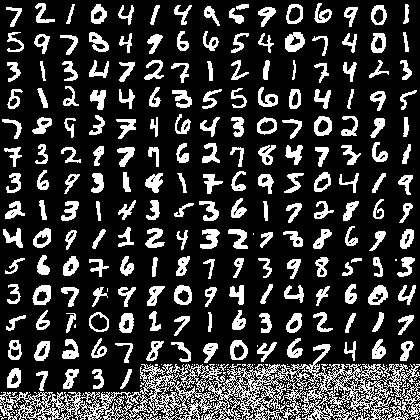 7 2 1 0 4 1 4 9 5 9 0 6 9 0 1
5 9 7 3 4 9 6 6 5 4 0 7 4 0 1
3 1 3 4 7 2 7 1 2 1 1 7 4 2 3
5 1 2 4 4 6 3 5 5 6 0 4 1 9 5
7 8 9 3 7 4 6 4 3 0 7 0 2 9 1
7 3 2 9 7 7 6 2 7 8 4 7 3 6 1
3 6 9 3 1 4 1 7 6 9 5 0 4 1 9
2 1 3 1 4 3 5 3 6 1 7 2 8 6 9
4 0 9 1 1 2 4 3 2 7 3 8 6 9 0
5 6 0 7 6 1 8 7 9 3 9 8 5 9 3
3 0 7 4 9 8 0 9 4 1 4 4 6 0 4
5 6 1 0 0 1 7 1 6 3 0 2 1 1 7
9 0 2 6 7 8 3 9 0 4 6 7 4 6 8
0 7 8 3 1